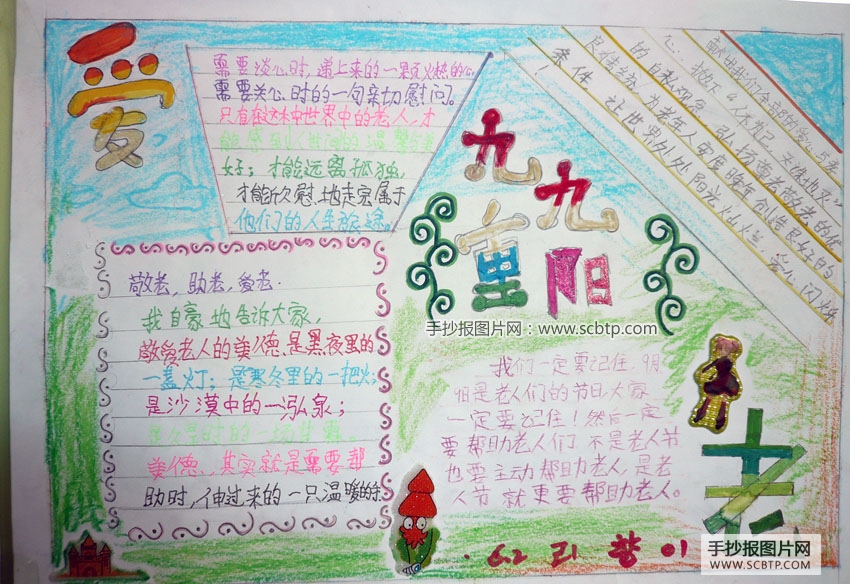 爱
需要谈心时,递上来的一颗火热的心
需要关心时的一句亲切慰问。
只有在这木中世界中的老人,才
能感到人世间的温馨与美
好;才能远离孤独,
才能欣慰地走完属于
他们的人生旅途。
九九
重阳
手抄报图片网:www.scbtp.com
献出我们全部的爱
心,放下
的自私观念,弘扬尊老敬老的优
良传统,为老年人安度晚年创造良好的
条件,让世界处处阳光灿烂,爱心闪烁
敬老,助老,爱老.
我自豪地告诉大家,
敬爱老人的美德,是黑夜里的
一盏灯;是寒冬里的一把火;
是沙漠中的一泓泉;
美德、其实就是需要帮
助时,伸过来的一只温暖的手
我们一定要记住,9月
9日是老人们的节日,大家
一定要记住!然后一定
要帮助老人们,不是老人节
也要主动帮助老人,是老
人节就更要帮助老人。
老
6.2
手抄报图片网
WWW.SCBTP.COM